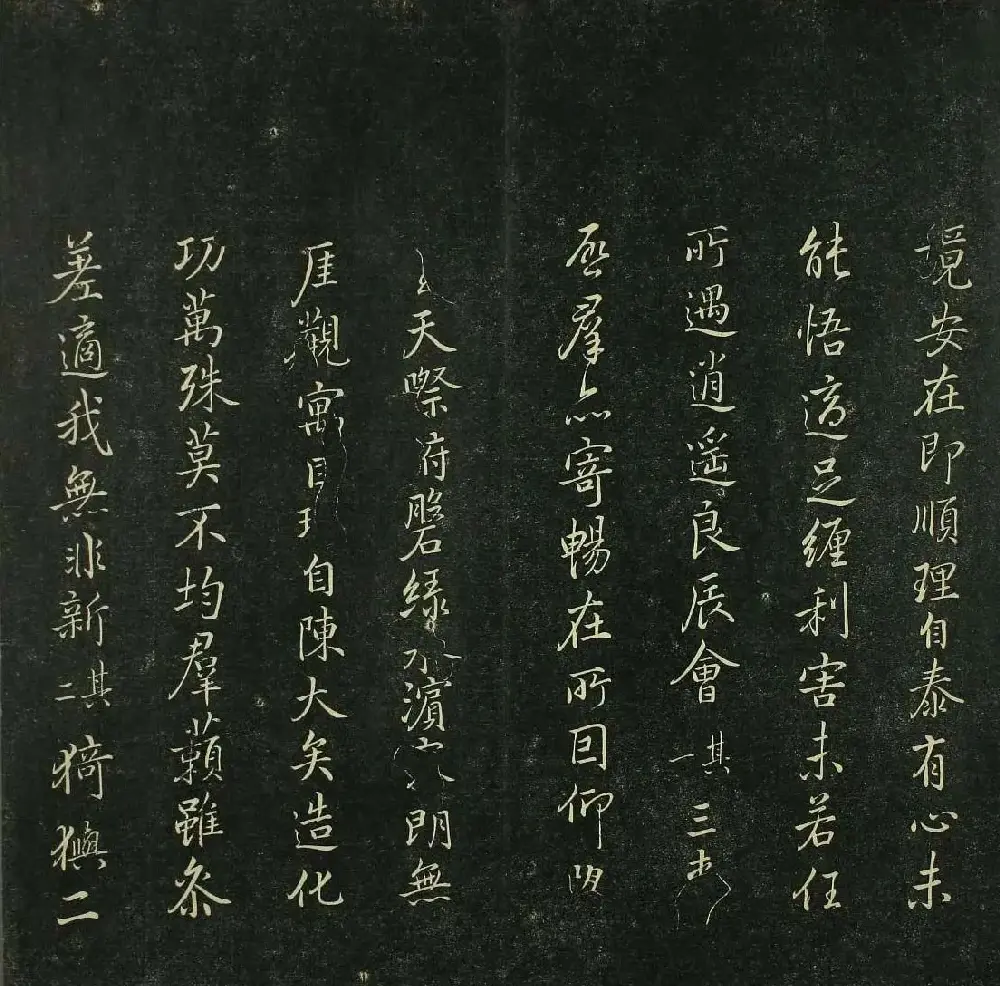 境安在即順理自泰有心未
能悟適足纏利害未若任
所遇逍遥良辰會 其一 三
羣 寄暢在所因仰
天際俯磐綠水濱 朗無
厓觀寓目 自陳大矣造化
功萬殊莫不均羣籟雖參
差適我無非新 其二 猗歟二